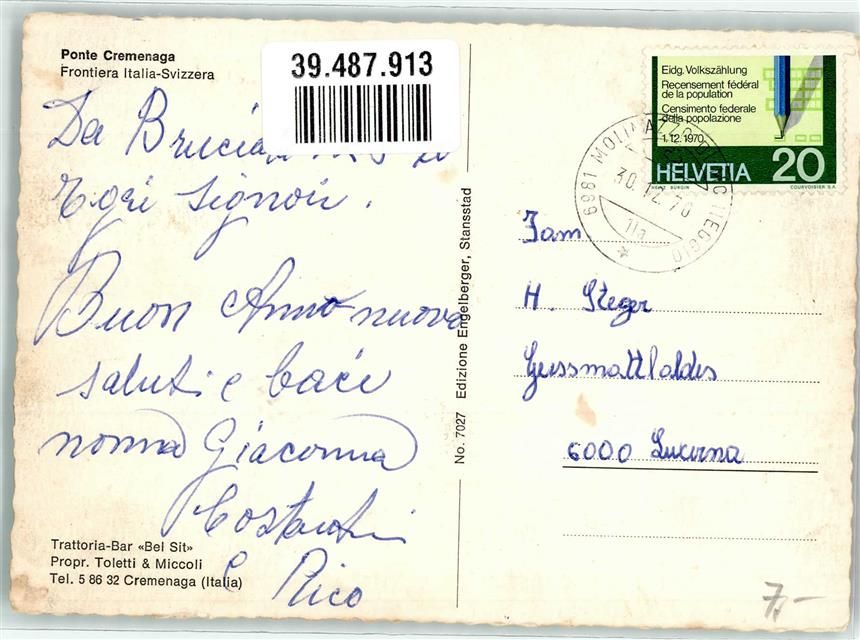 Ponte Cremenaga
Frontiera Italia-Svizzera
39.487.913
Da
Signori.
Buon Anno nuovo
saluti e baci
nonna Giacomina
Costantini
e Rico
Trattoria-Bar «Bel Sit»
Propr. Toletti & Miccoli
Tel. 5 86 32 Cremenaga (Italia)
No. 7027 Edizione Engelberger, Stansstad
Eidg. Volkszählung
Recensement fédéral
de la population
Censimento federale
della popolazione
1.12.1970
HELVETIA 20
COURVOISIER S.A.
6981
30.12.70
11a
Fam
H. Steger
6000 Lucerna
7,-